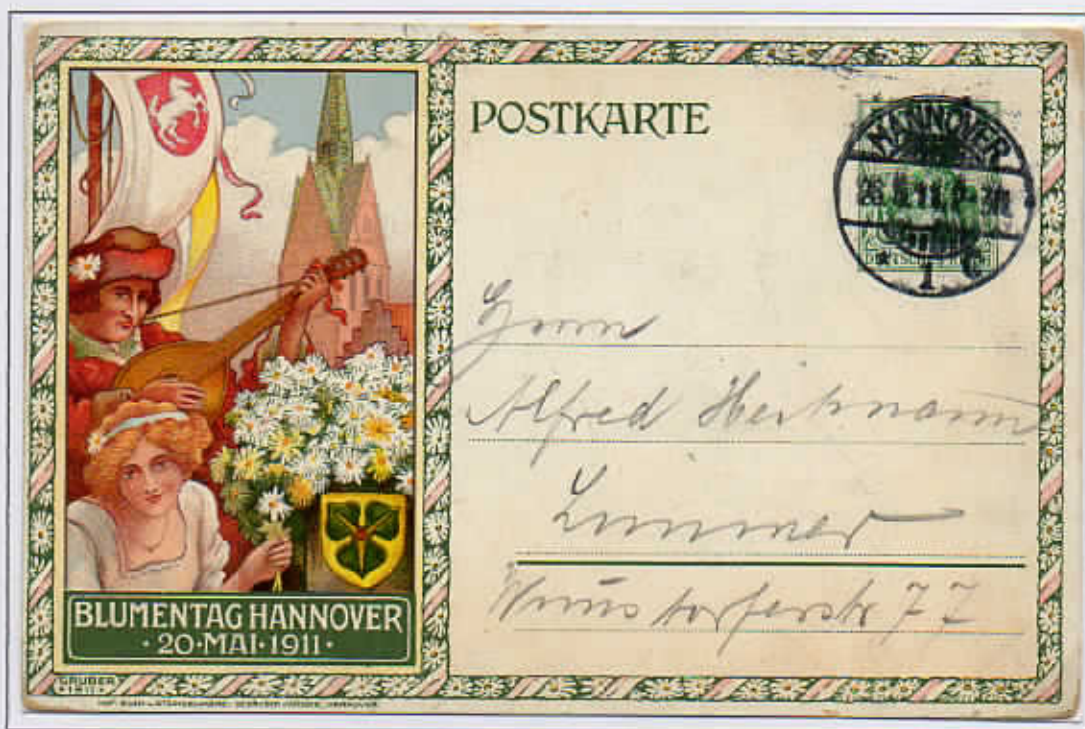 POSTKARTE
HANNOVER
1 C
Herrn
Alfred Heitmann
Limmer
Wunstorferstr 77
BLUMENTAG HANNOVER
· 20·MAI·1911 ·
GRUBER